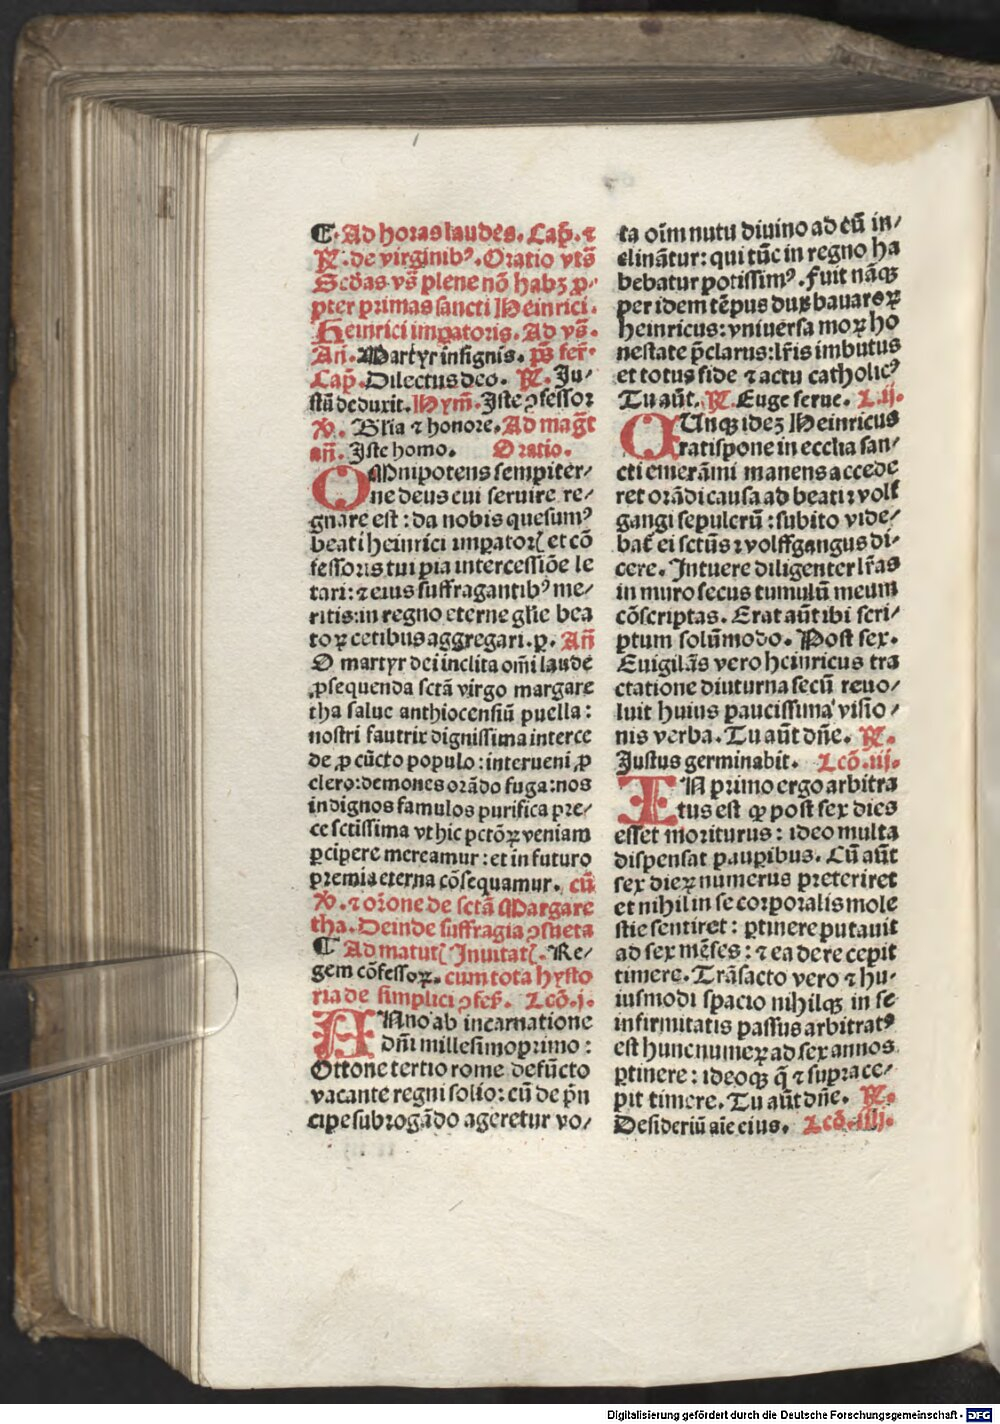 ⸿. Ad horas laudes. Cap̄. ⁊
℟. de virginibꝰ. Oratio vts̄
Scd̄as vs̄ plene nō habꝫ ꝓ-
pter primas sancti Heinrici.
Heinrici imꝑatoris. Ad vs̄.
An̄. Martyr insignis. ps̄ fer̄.
Cap̄. Dilectus deo. ℟. Ju-
stū deduxit. Hym̄. Iste ꝯfessor
℣. Gl̄ia ⁊ honore. Ad magn̄t
an̄. Iste homo. Oratio.
OMnipotens sempiter/
ne deus cui seruire re/
gnare est : da nobis quesumꝰ
beati heinrici imꝑatoꝝ et cō
fessoris tui pia intercessiōe le
tari : ⁊ eius suffragantibꝰ me/
ritis : in regno eterne gl̄ie bea
toꝝ cetibus aggregari. ꝑ. An̄
O martyr dei inclita om̄i laude
ꝓsequenda sctā virgo margare
tha salue anthiocensiū puella :
nostri fautrix dignissima interce
de ꝓ cūcto populo : interueni ꝓ
clero : demones orādo fuga : nos
indignos famulos purifica pre/
ce sctissima vt hic pctōꝝ veniam
ꝑcipere mereamur : et in futuro
premia eterna cōsequamur. cū
℣. ⁊ or̄one de sctā Margare
tha. Deinde suffragia ꝯsueta
⸿ Ad matut̄. Inuitat̄. Re-
gem cōfessoꝝ. cum tota hysto
ria de simplici ꝯfes̄. Lcō. j.
ANno ab incarnatione
dn̄i millesimo primo :
Ottone tertio rome defūcto
vacante regni solio : cū de pn̄
cipe subrogādo ageretur vo/
ta oīm nutu diuino ad eū in/
clinātur : qui tūc in regno ha
bebatur potissimꝰ. Fuit nāqꝫ
per idem tēpus dux bauaroꝝ
heinricus : vniuersa moꝝ ho
nestate p̄clarus : lr̄is imbutus
et totus fide ⁊ actu catholicꝰ
Tu aūt. ℟. Euge serue. L. ij.
CUnqꝫ ideꝫ Heinricus
ratispone in ecclīa san/
cti emerāmi manens accede
ret orādi causa ad beati volf
gangi sepulcrū : subito vide/
bat̄ ei sctūs volffgangus di-
cere. Intuere diligenter lr̄as
in muro secus tumulū meum
cōscriptas. Erat aūt ibi scri/
ptum solūmodo. Post sex.
Euigilās vero heinricus tra
ctatione diuturna secū reuo/
luit huius paucissima visio/
nis verba. Tu aūt dn̄e. ℟.
Justus germinabit. Lcō. iij.
IN primo ergo arbitra
tus est ꝙ post sex dies
esset moriturus : ideo multa
dispensat pauꝑibus. Cū aūt
sex dieꝝ numerus preteriret
et nihil in se corporalis mole
stie sentiret : ꝑtinere putauit
ad sex mēses : ⁊ ea de re cepit
timere. Trāsacto vero ⁊ hu-
iusmodi spacio nihilqꝫ in se
infirmitatis passus arbitratꝰ
est hunc numeꝝ ad sex annos
ꝑtinere : ideoqꝫ q̄ ⁊ supra ce-
pit timere. Tu aūt dn̄e. ℟.
Desideriū aīe eius. Lcō. iiij.
Digitalisierung gefördert durch die Deutsche Forschungsgemeinschaft - DFG